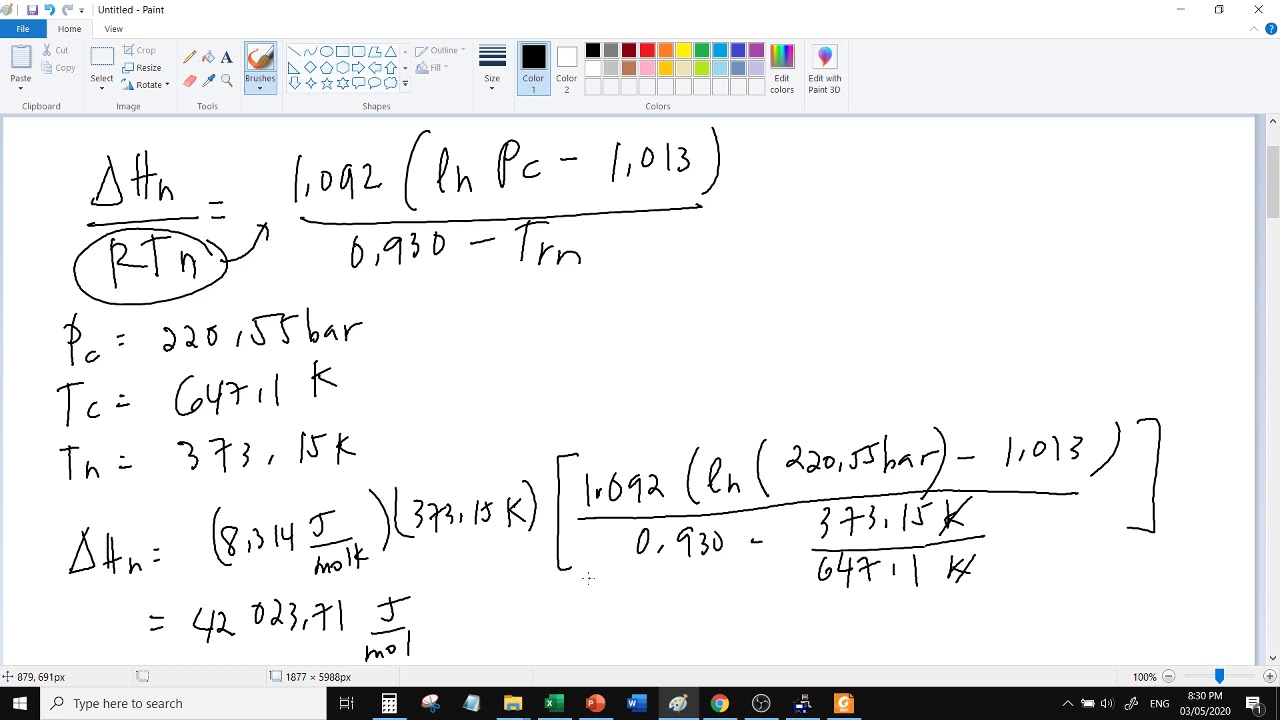 Untitled - Paint
File Home View
Paste
Cut
Copy
Clipboard
Select
Crop
Resize
Rotate
Image
Tools
Brushes
Shapes
Outline
Fill
Size
Color 1
Color 2
Edit colors
Edit with Paint 3D
Colors
ΔHn / RTn = 1,092 (ln Pc - 1,013) / 0,930 - Trn
Pc = 220,55 bar
Tc = 647,1 K
Tn = 373,15 K
ΔHn = (8,314 J / mol K) (373,15 K) [ 1.092 (ln (220,55 bar) - 1,013) / 0,930 - 373,15 K / 647,1 K ]
= 42 023,71 J / mol
879, 691px
1877 × 5988px
100%
Type here to search
ENG
8:30 PM
03/05/2020